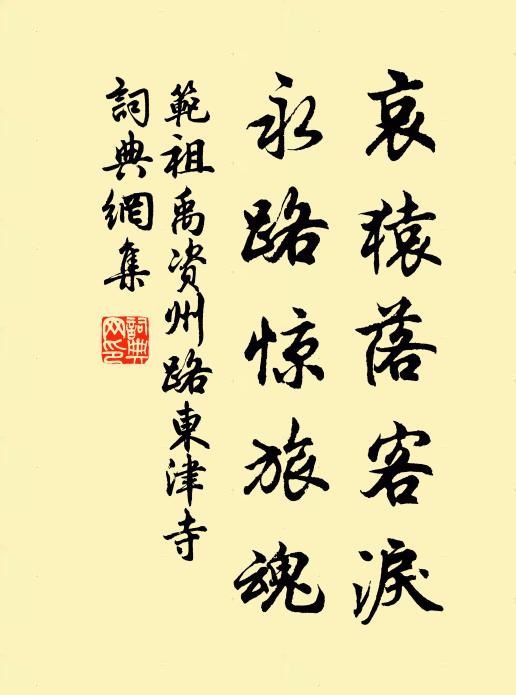 哀猿落客淚
永路惊旅魂
範祖禹資州路東津寺
詞典網集
詞典
网印